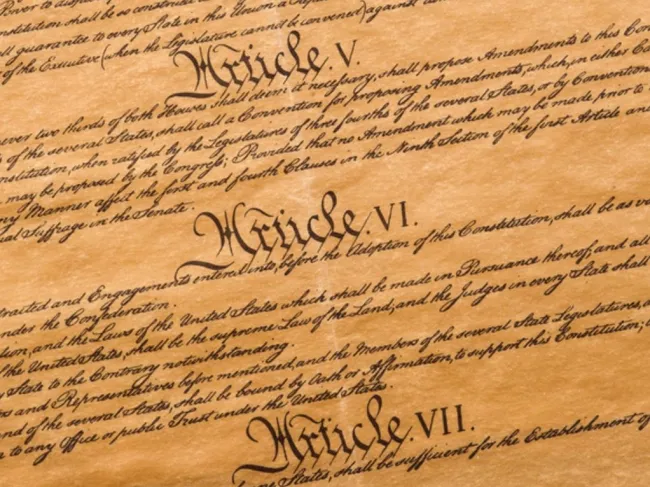 Power to dispose
Constitution shall be so construed
ll guarantee to every State in this Union a Repub
of the Executive (when the Legislature cannot be convened) against
Article. V.
ever two thirds of both Houses shall deem it necessary, shall propose Amendments to this Con
of the several States, shall call a Convention for proposing Amendments, which, in either Ca
nstitution, when ratified by the Legislatures of three fourths of the several States, or by Convention
may be proposed by the Congress; Provided that no Amendment which may be made prior to
ny Manner affect the first and fourth Clauses in the Ninth Section of the first Article and
al Suffrage in the Senate.
Article. VI.
tracted and Engagements entered into, before the Adoption of this Constitution, shall be as va
nder the Confederation.
tion, and the Laws of the United States which shall be made in Pursuance thereof; and all
f the United States, shall be the supreme Law of the Land; and the Judges in every State shall
y State to the Contrary notwithstanding.
rs and Representatives before mentioned, and the Members of the several State Legislatures, a
nd of the several States, shall be bound by Oath or Affirmation, to support this Constitution;
to any Office or public Trust under the United States.
Article. VII.
ne States, shall be sufficient for the Establishment of